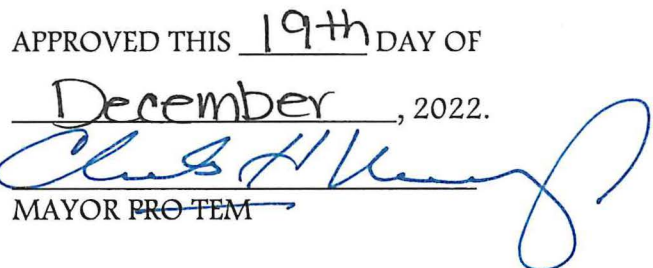 APPROVED THIS 19th DAY OF
December, 2022.
MAYOR PRO TEM